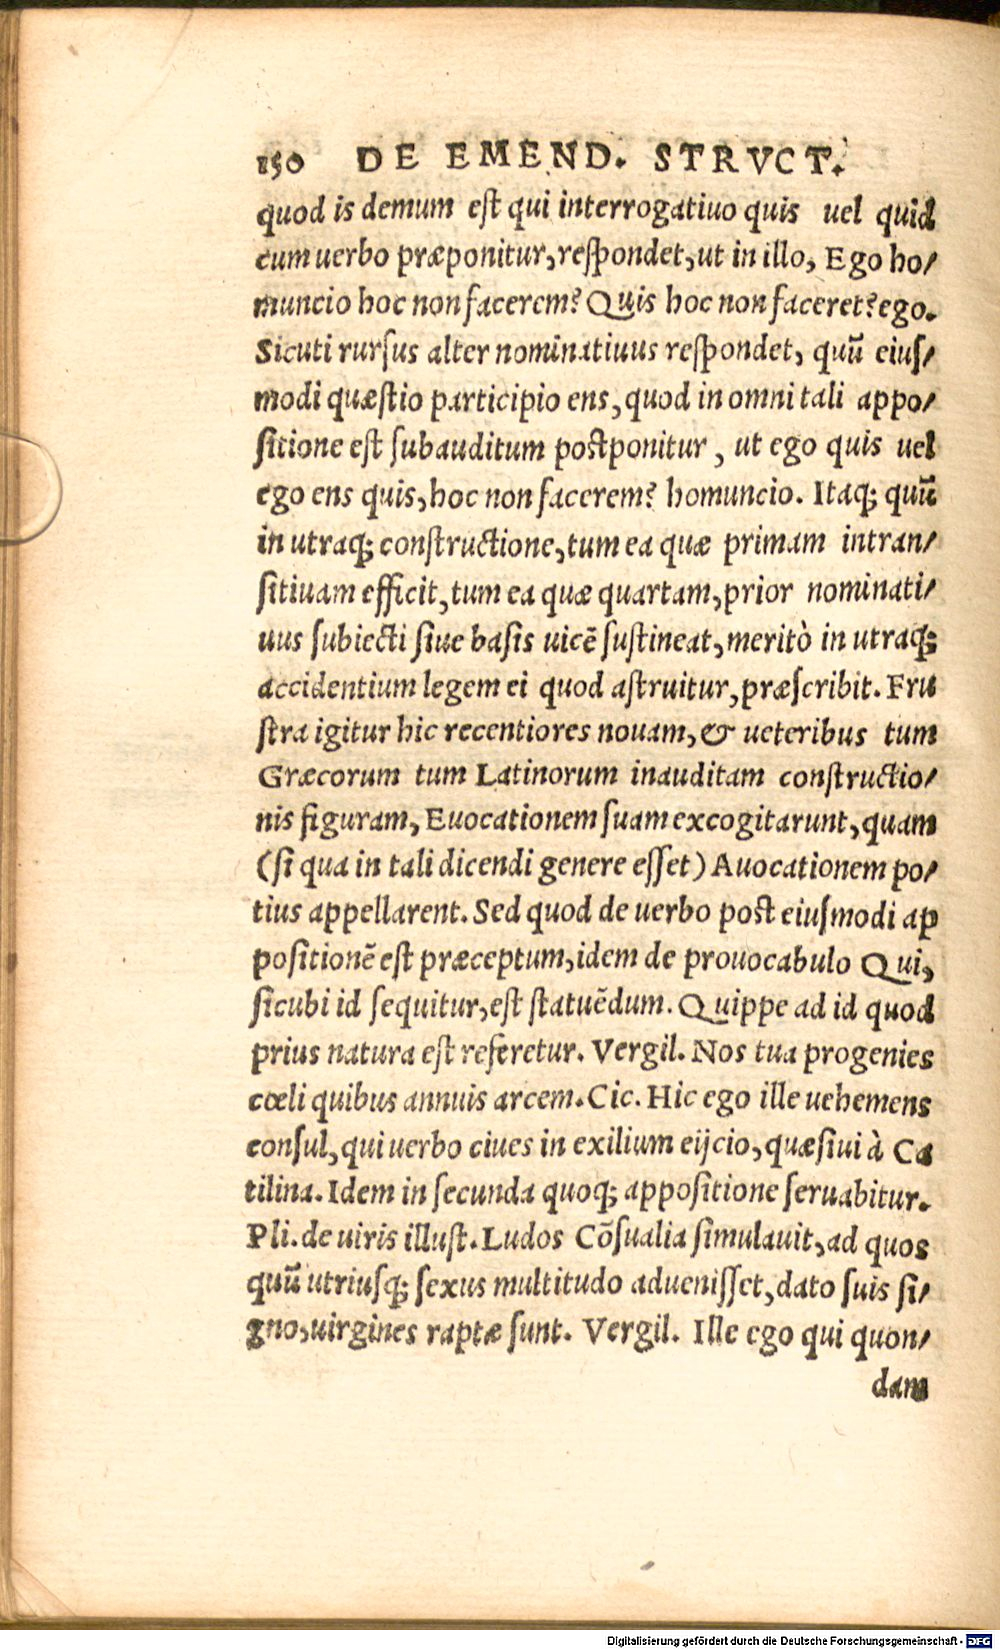 150 DE EMEND. STRVCT.
quod is demum est qui interrogatiuo quis uel quid
cum uerbo præponitur, respondet, ut in illo, Ego ho/
muncio hoc non facerem? Quis hoc non faceret? ego.
Sicuti rursus alter nominatiuus respondet, quũ eius/
modi quæstio participio ens, quod in omni tali appo/
sitione est subauditum postponitur, ut ego quis uel
ego ens quis, hoc non facerem? homuncio. Itaq; quũ
in utraq; constructione, tum ea quæ primam intran/
sitiuam efficit, tum ea quæ quartam, prior nominati/
uus subiecti siue basis uicẽ sustineat, meritò in utraq;
accidentium legem ei quod astruitur, præscribit. Fru
stra igitur hic recentiores nouam, & ueteribus tum
Græcorum tum Latinorum inauditam constructio/
nis figuram, Euocationem suam excogitarunt, quam
(si qua in tali dicendi genere esset) Auocationem po/
tius appellarent. Sed quod de uerbo post eiusmodi ap
positionẽ est præceptum, idem de prouocabulo Qui,
sicubi id sequitur, est statuẽdum. Quippe ad id quod
prius natura est referetur. Vergil. Nos tua progenies
cœli quibus annuis arcem. Cic. Hic ego ille uehemens
consul, qui uerbo ciues in exilium eijcio, quæsiui à Ca
tilina. Idem in secunda quoq; appositione seruabitur.
Pli. de uiris illust. Ludos Cõsualia simulauit, ad quos
quũ utriusq; sexus multitudo aduenisset, dato suis si/
gno, uirgines raptæ sunt. Vergil. Ille ego qui quon/
dam
Digitalisierung gefördert durch die Deutsche Forschungsgemeinschaft - DFG